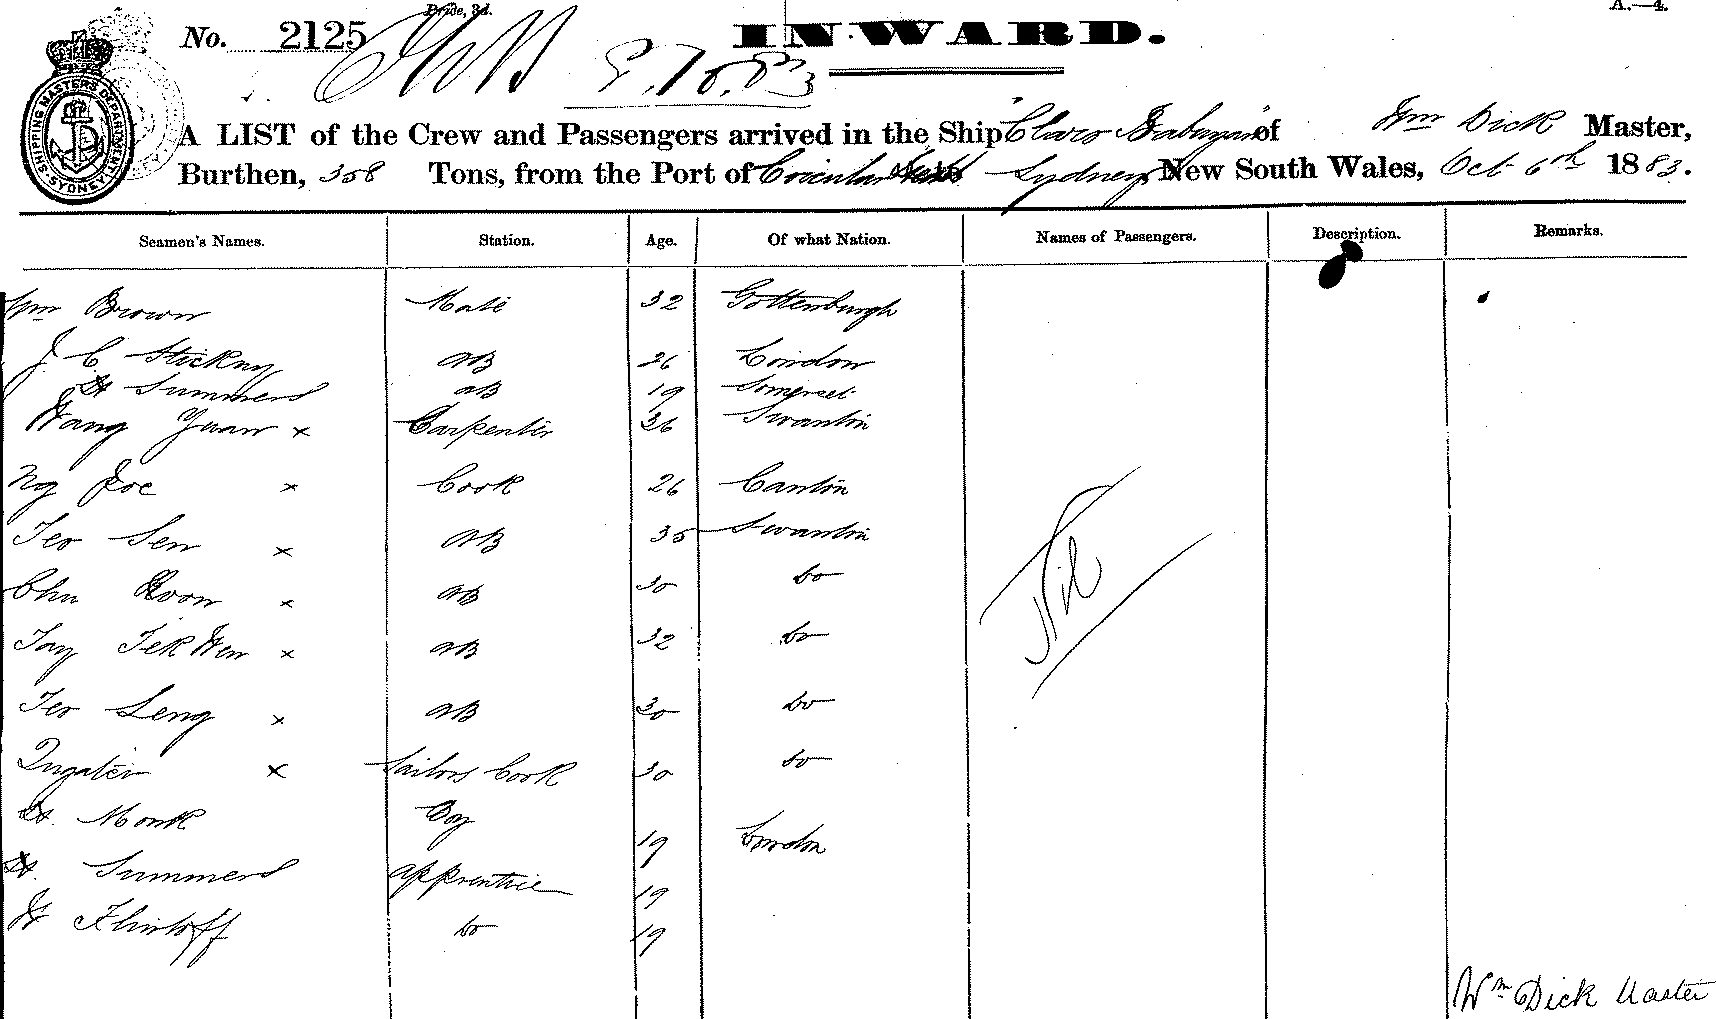 Price, 3d.
A.—4.
No. 2125
INWARD.
9.10.83
SHIPPING MASTERS DEPARTMENT SYDNEY
A LIST of the Crew and Passengers arrived in the Ship "Clara of Wm Dick Master,
Burthen, 358 Tons, from the Port of Sydney New South Wales, Oct 6th 1883.
Seamen's Names. Station. Age. Of what Nation. Names of Passengers. Description. Remarks.
Wm Brown Mate 32 Gottenburgh
J C Stickny AB 26 London
H Summers AB 19 Somerset
Wang Yuan x Carpenter 36 Swantin
Ng Joe x Cook 26 Cantin
Teo Sen x AB 35 Swantin
Chu Koon x AB 30 Do
Tay Tek Wen x AB 32 Do
Teo Seng x AB 30 Do
x Sailors Cook 30 Do
Monk Boy 19 London
H. Summers apprentice 19
W Flintoff Do 19
Nil
Wm Dick Master